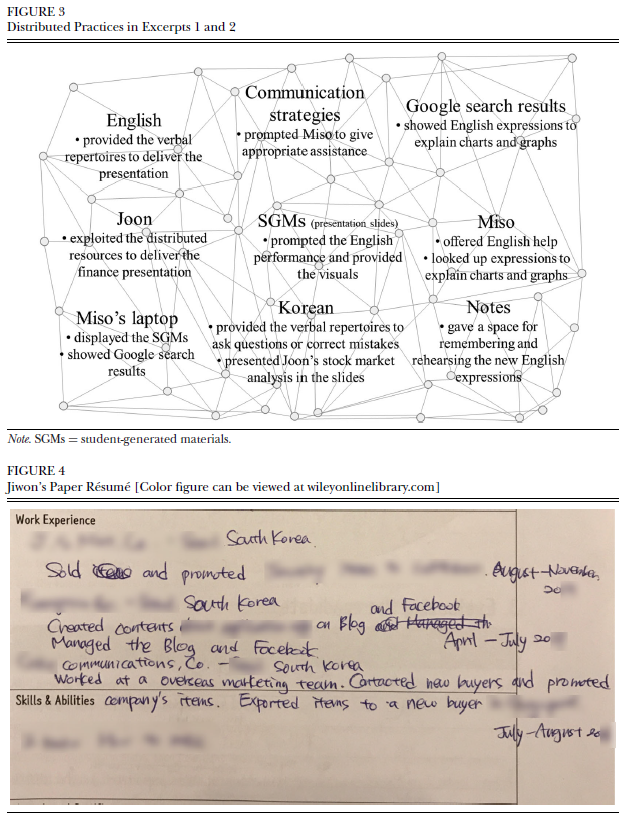 FIGURE 3
Distributed Practices in Excerpts 1 and 2
English
• provided the verbal
repertoires to deliver the
presentation
Communication
strategies
• prompted Miso to give
appropriate assistance
Google search results
• showed English expressions to
explain charts and graphs
Joon
• exploited the distributed
resources to deliver the
finance presentation
SGMs (presentation slides)
• prompted the English
performance and provided
the visuals
Miso
• offered English help
• looked up expressions to
explain charts and graphs
Miso's laptop
• displayed the SGMs
• showed Google search
results
Korean
• provided the verbal repertoires to
ask questions or correct mistakes
• presented Joon's stock market
analysis in the slides
Notes
• gave a space for
remembering and
rehearsing the new English
expressions
Note. SGMs = student-generated materials.
FIGURE 4
Jiwon's Paper Résumé [Color figure can be viewed at wileyonlinelibrary.com]
Work Experience
South Korea.
Sold and promoted . August-November
20
South Korea
and Facebook
Created contents on Blog
Managed the Blog and Facebook April - July 20
communications, Co. - South Korea
Worked at a overseas marketing team. Contacted new buyers and promoted
Skills & Abilities company's items. Exported items to a new buyer
July-August 20